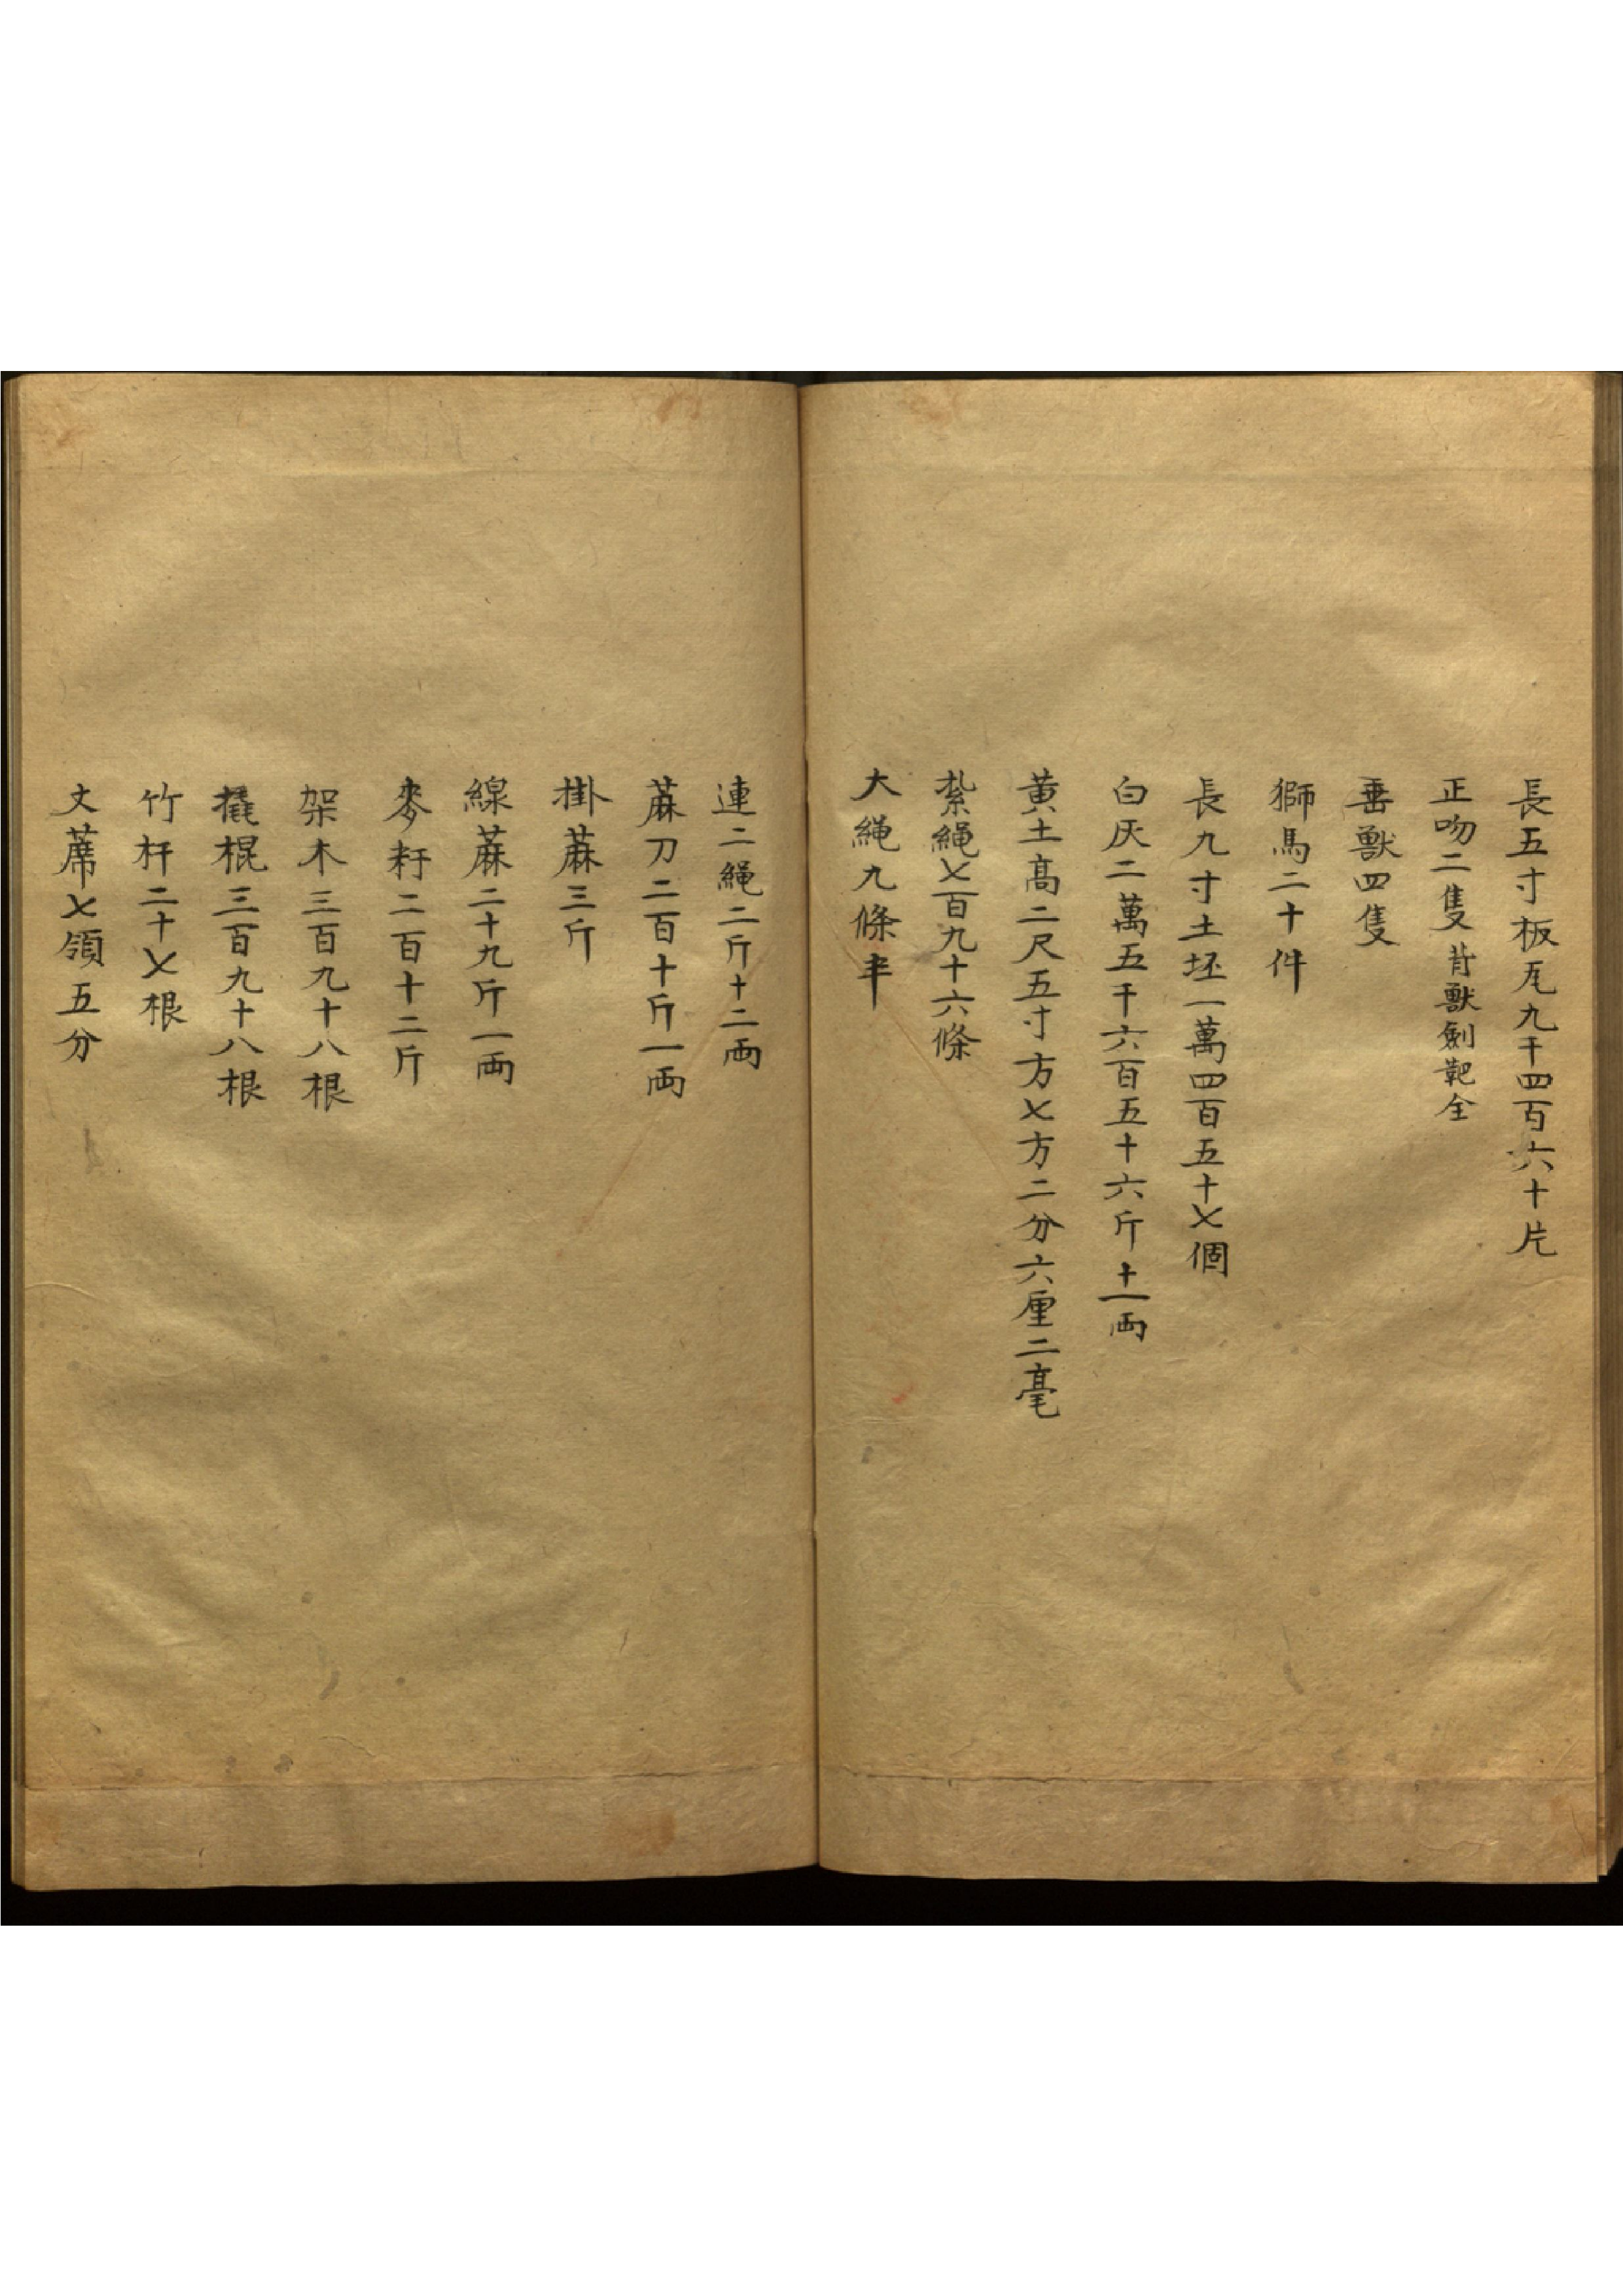 長五寸板瓦九千四百六十片
正吻二隻背獸劍靶全
垂獸四隻
獅馬二十件
長九寸土坯一萬四百五十七個
白灰二萬五千六百五十六斤十一両
黄土高二尺五寸方七方二分六厘二毫
紮繩七百九十六條
大繩九條半
連二繩二斤十二両
蔴刀二百十斤一両
掛蔴三斤
線蔴二十九斤一両
麥秆二百十二斤
架木三百九十八根
撬棍三百九十八根
竹杆二十七根
丈蓆七領五分